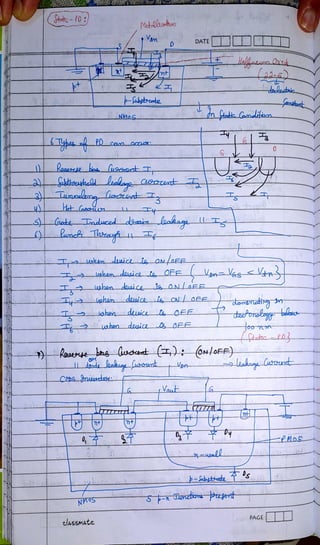 Static - PD:
Metallization
VDD
DATE
S
D
I3
n+
n+
p+
I5
I1
p-Substrate
NMOS
Hafnium Oxide
(22-25)
dielectric
Constant
In Static Condition
6 Types of PD can occur
I4
I3
G
D
I2
I5
I1
1) Reverse bias Current I1
2) Subthreshold leakage current I2
3) Tunneling Current I3
4) Hot Carrier " I4
5) Gate Induced drain leakage " I5
6) Punch Through " I6
I1 → when device is ON/OFF
I2 → when device is OFF { VGS < Vth }
I3 → when device is ON/OFF
I4 → when device is ON/OFF
I5 → when device is OFF
I6 → when device is OFF
dominating in
technology below
100nm
[Static-PD]
1) Reverse bias Current (I1): (ON/OFF)
or
" diode leakage current
VDD
→ leakage Current
CMOS Inverter:
G
Vout
G
p+
n+
n+
p+
p+
n+
D1
D2
D3
D4
n-well
PMOS
p-Substrate
D5
NMOS
5 p-n Junctions present
classmate
PAGE